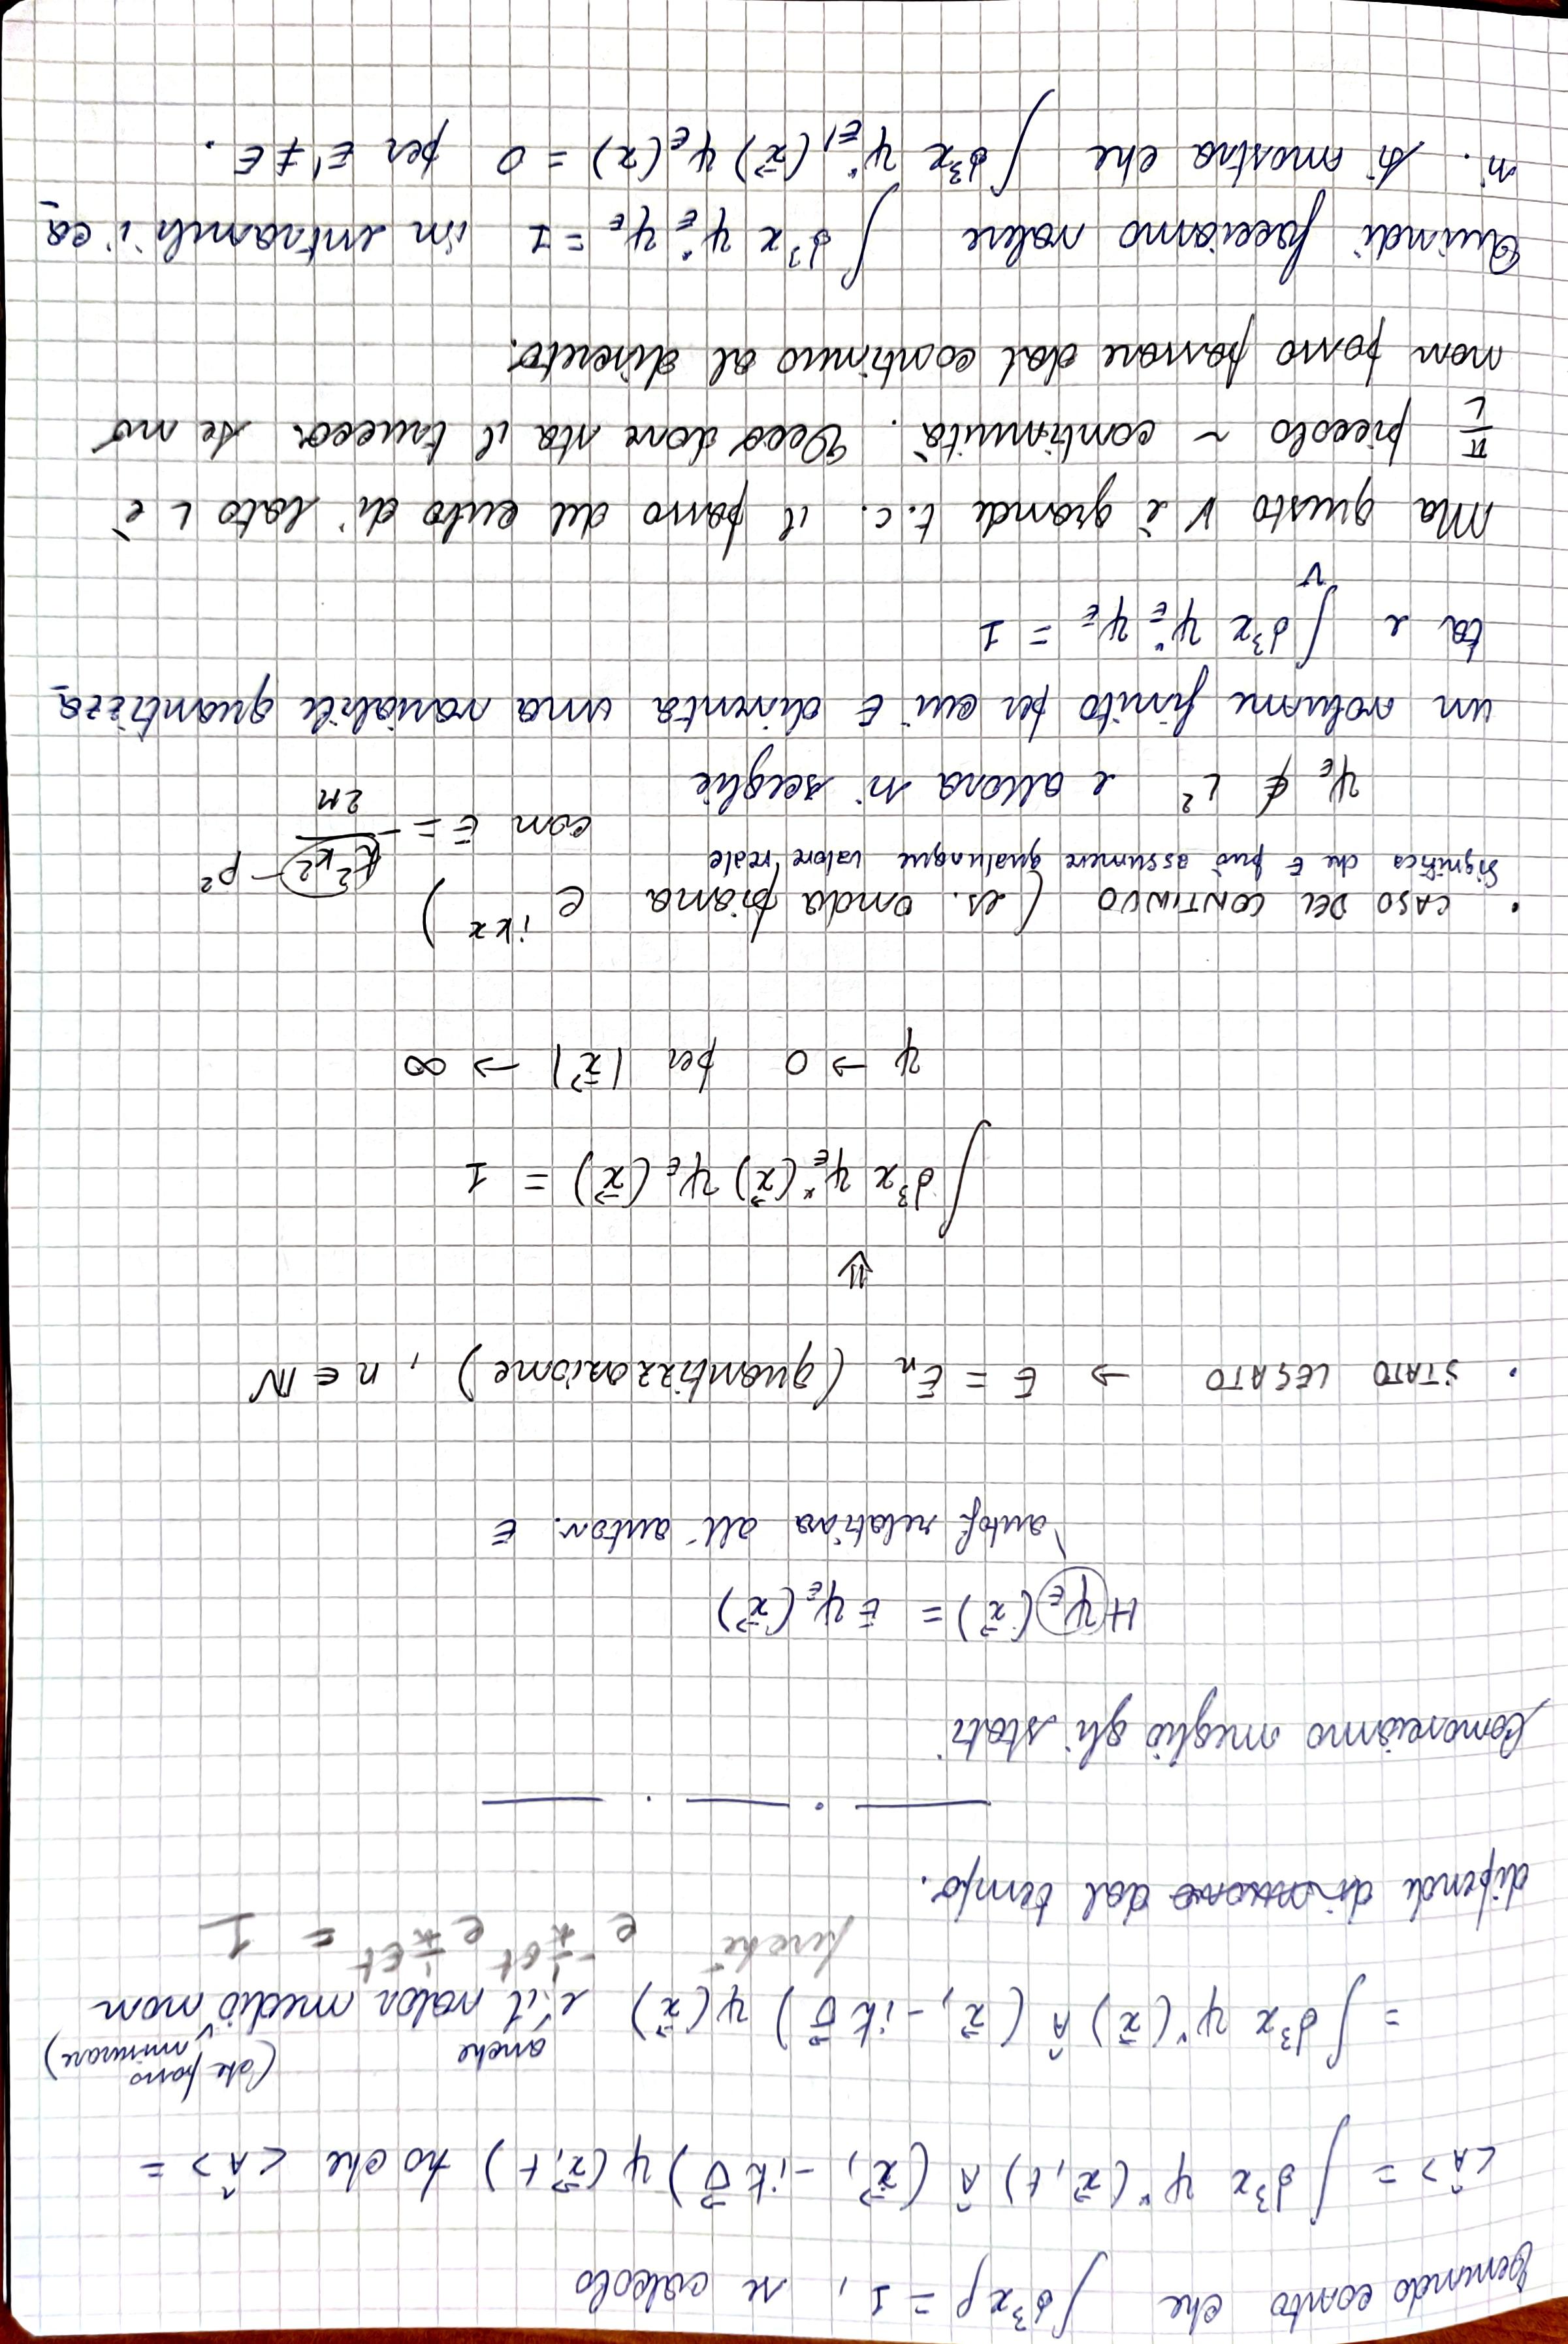 Tenendo conto che ∫ d³x ρ = 1 , se calcolo
<Â> = ∫ d³x ψ*(x⃗,t) Â (x⃗, -iħ ∇⃗) ψ(x⃗,t) ho che <Â> =
= ∫ d³x ψ*(x⃗) Â (x⃗, -iħ ∇⃗) ψ(x⃗) anche è il valor medio (che posso misurare) non
dipende dal tempo. perché e^{-i/ħ Et} e^{i/ħ Et} = 1
Conosciamo meglio gli stati
H ψ_E (x⃗) = E ψ_E (x⃗)
autof. relativa all'autov. E
• STATO LEGATO → E = E_n (quantizzazione) , n ∈ ℕ
⇓
∫ d³x ψ*_E (x⃗) ψ_E (x⃗) = 1
ψ → 0 per |x⃗| → ∞
• CASO DEL CONTINUO (es. onda piana e^{ikx})
significa che E può assumere qualunque valore reale
con E = - ħ²k²/2M - p²
ψ_E ∉ L² e allora si sceglie
un volume finito per cui E diventa una variabile quantizza
ta e ∫_V d³x ψ*_E ψ_E = 1
Ma questo V è grande t.c. il passo del cubo di lato L è
π/L piccolo ~ continuità. Ecco dove sta il trucco. Se no
non posso passare dal continuo al discreto.
Quindi facciamo valere ∫ d³x ψ*_E ψ_E = 1 in entrambi i ca
si. Si mostra che ∫ d³x ψ*_E' (x⃗) ψ_E (x) = 0 per E' ≠ E .